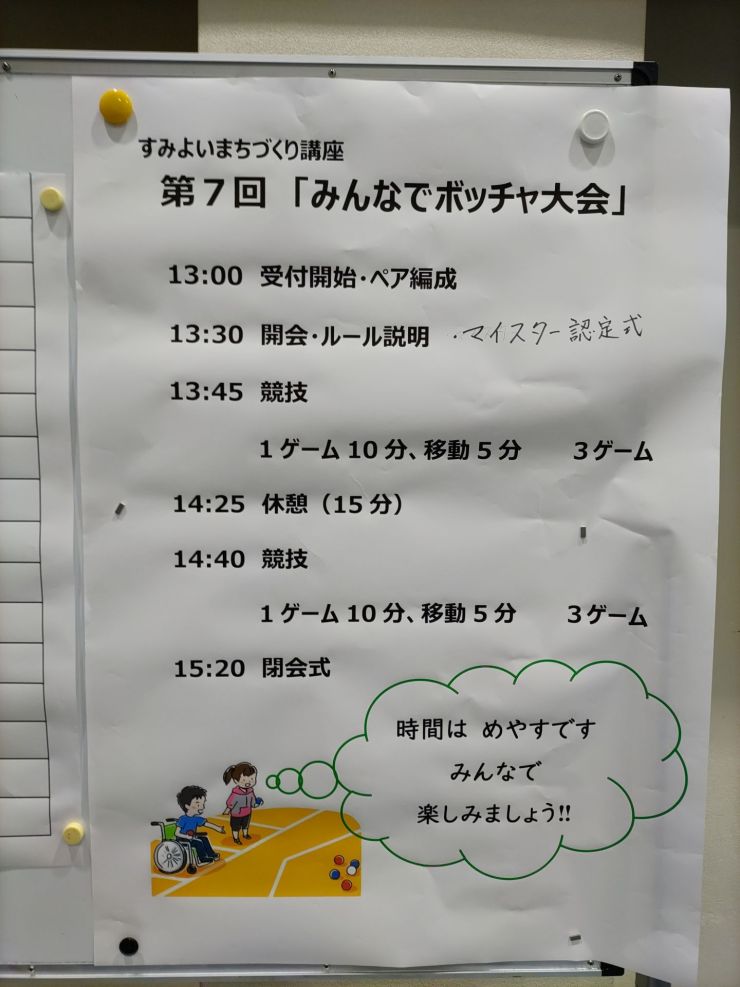 すみよいまちづくり講座
第７回「みんなでボッチャ大会」
13:00 受付開始・ペア編成
13:30 開会・ルール説明 ・マイスター認定式
13:45 競技
１ゲーム 10 分、移動 5 分 ３ゲーム
14:25 休憩（15 分）
14:40 競技
１ゲーム 10 分、移動 5 分 ３ゲーム
15:20 閉会式
時間は めやすです
みんなで
楽しみましょう!!